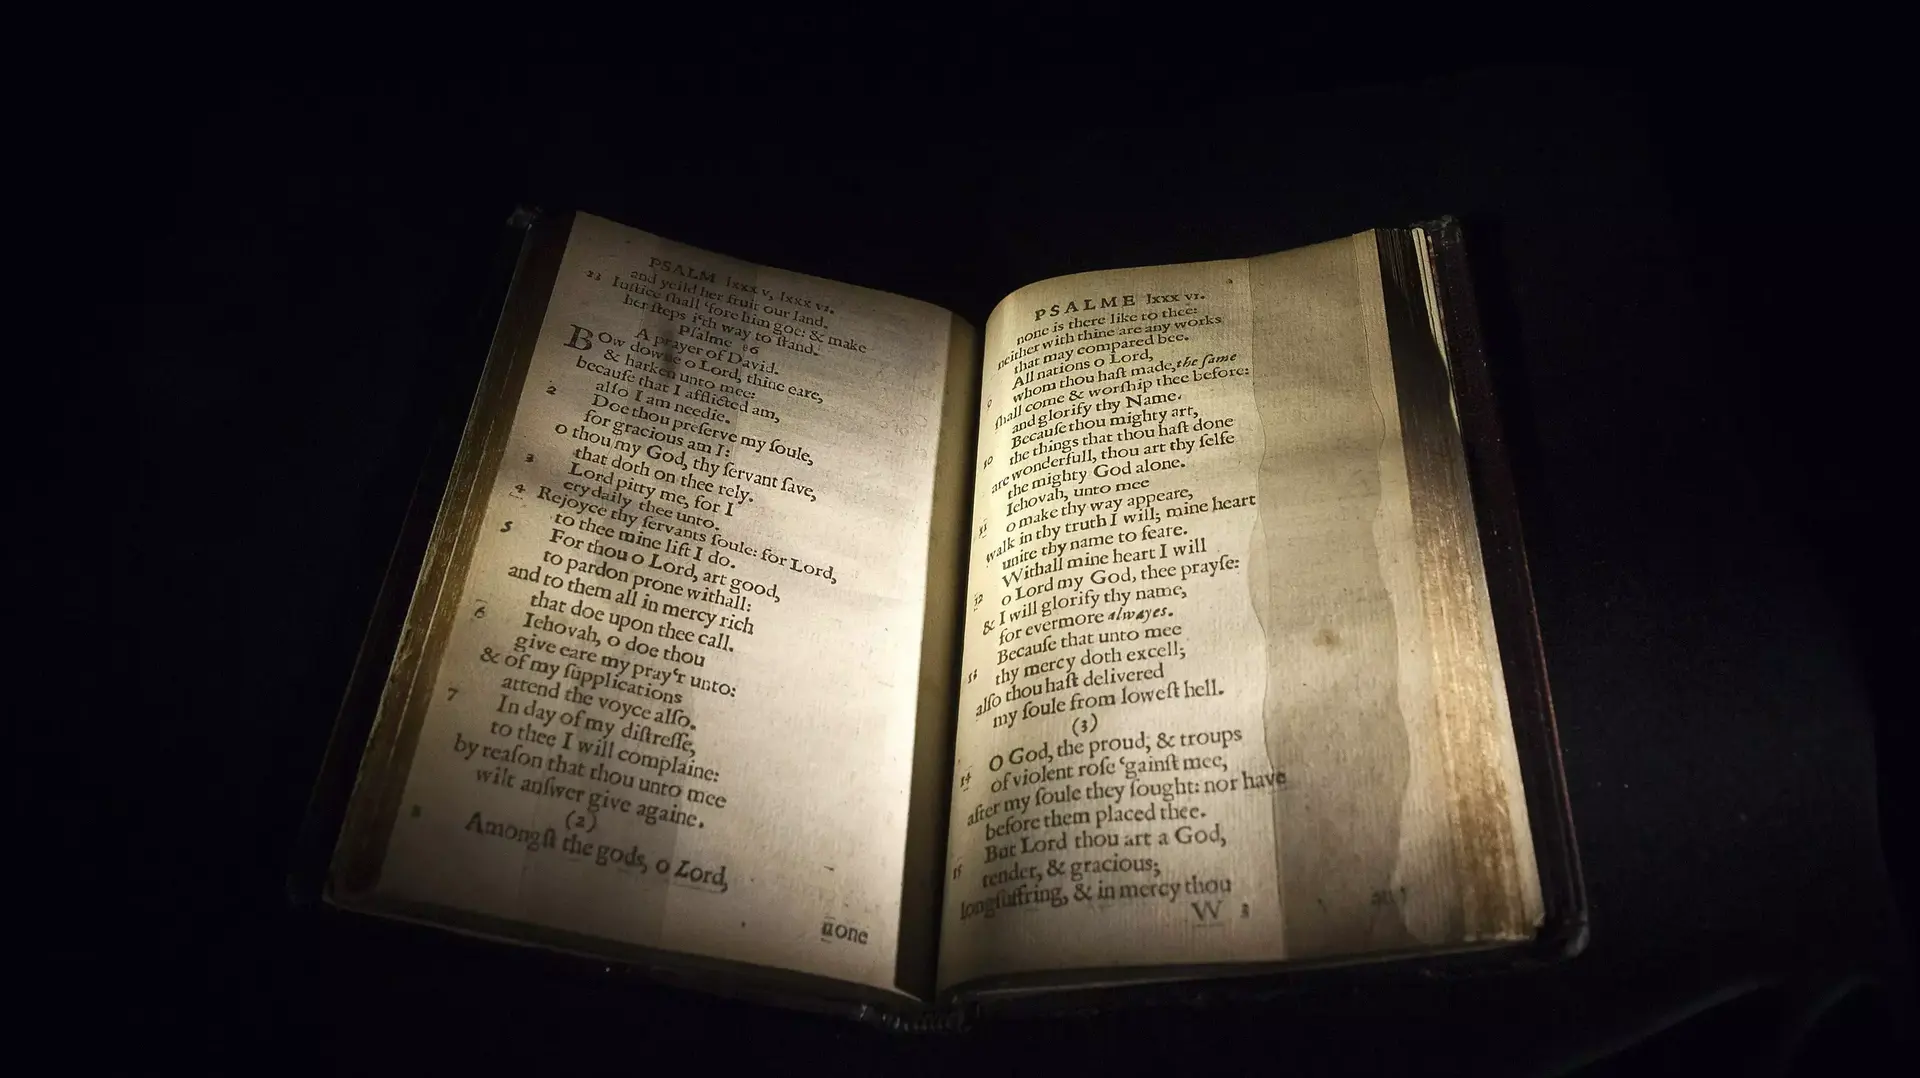 PSALM lxxx v, lxxx vi.
and yeild her fruit our land.
23 Iuſtice ſhall 'fore him goe: & make
her ſteps i'th way to ſtand.
Pſalme 86
A prayer of David.
BOw downe o Lord, thine eare,
& harken unto mee:
becauſe that I afflicted am,
alſo I am needie.
2 Doe thou preſerve my ſoule,
for gracious am I:
o thou my God, thy ſervant ſave,
that doth on thee rely.
3 Lord pitty me, for I
cry daily thee unto.
4 Rejoyce thy ſervants ſoule: for Lord,
to thee mine lift I do.
5 For thou o Lord, art good,
to pardon prone withall:
and to them all in mercy rich
that doe upon thee call.
6 Iehovah, o doe thou
give eare my pray'r unto:
& of my ſupplications
attend the voyce alſo.
7 In day of my diſtreſſe,
to thee I will complaine:
by reaſon that thou unto mee
wilt anſwer give againe.
(2)
8 Amongſt the gods, o Lord,
none
PSALME lxxx vi.
none is there like to thee:
neither with thine are any works
that may compared bee.
9 All nations o Lord,
whom thou haſt made, the ſame
ſhall come & worſhip thee before:
and glorify thy Name.
10 Becauſe thou mighty art,
the things that thou haſt done
are wonderfull, thou art thy ſelfe
the mighty God alone.
11 Iehovah, unto mee
o make thy way appeare,
walk in thy truth I will; mine heart
unite thy name to feare.
12 Withall mine heart I will
o Lord my God, thee prayſe:
& I will glorify thy name,
for evermore alwayes.
13 Becauſe that unto mee
thy mercy doth excell;
alſo thou haſt delivered
my ſoule from loweſt hell.
(3)
14 O God, the proud, & troups
of violent roſe 'gainſt mee,
after my ſoule they ſought: nor have
before them placed thee.
15 But Lord thou art a God,
tender, & gracious;
longſuffring, & in mercy thou
W 3